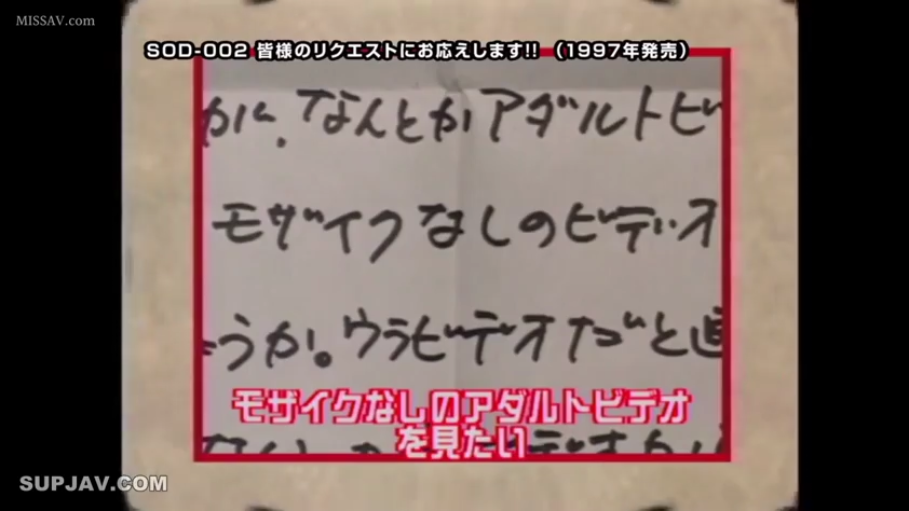 MISSAV.com
SOD-002 皆様のリクエストにお応えします!! (1997年発売)
かに、なんとかアダルトビ
モザイクなしのビデオ
うか。ウラビデオだと
モザイクなしのアダルトビデオ
を見たい
SUPJAV.COM